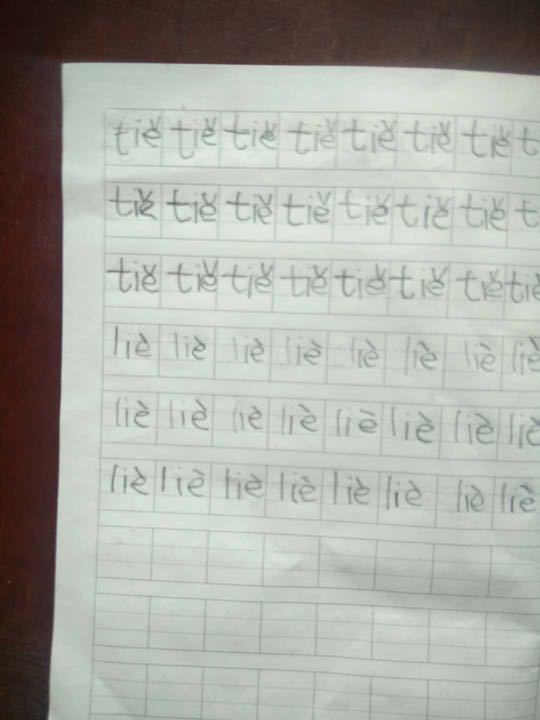 tiě tiě tiě tiě tiě tiě tiě t
tiě tiě tiě tiě tiě tiě tiě t
tiě tiě tiě tiě tiě tiě tiě tiě
liè liè liè liè liè liè liè liè
liè liè liè liè liè liè liè liè
liè liè liè liè liè liè liè liè